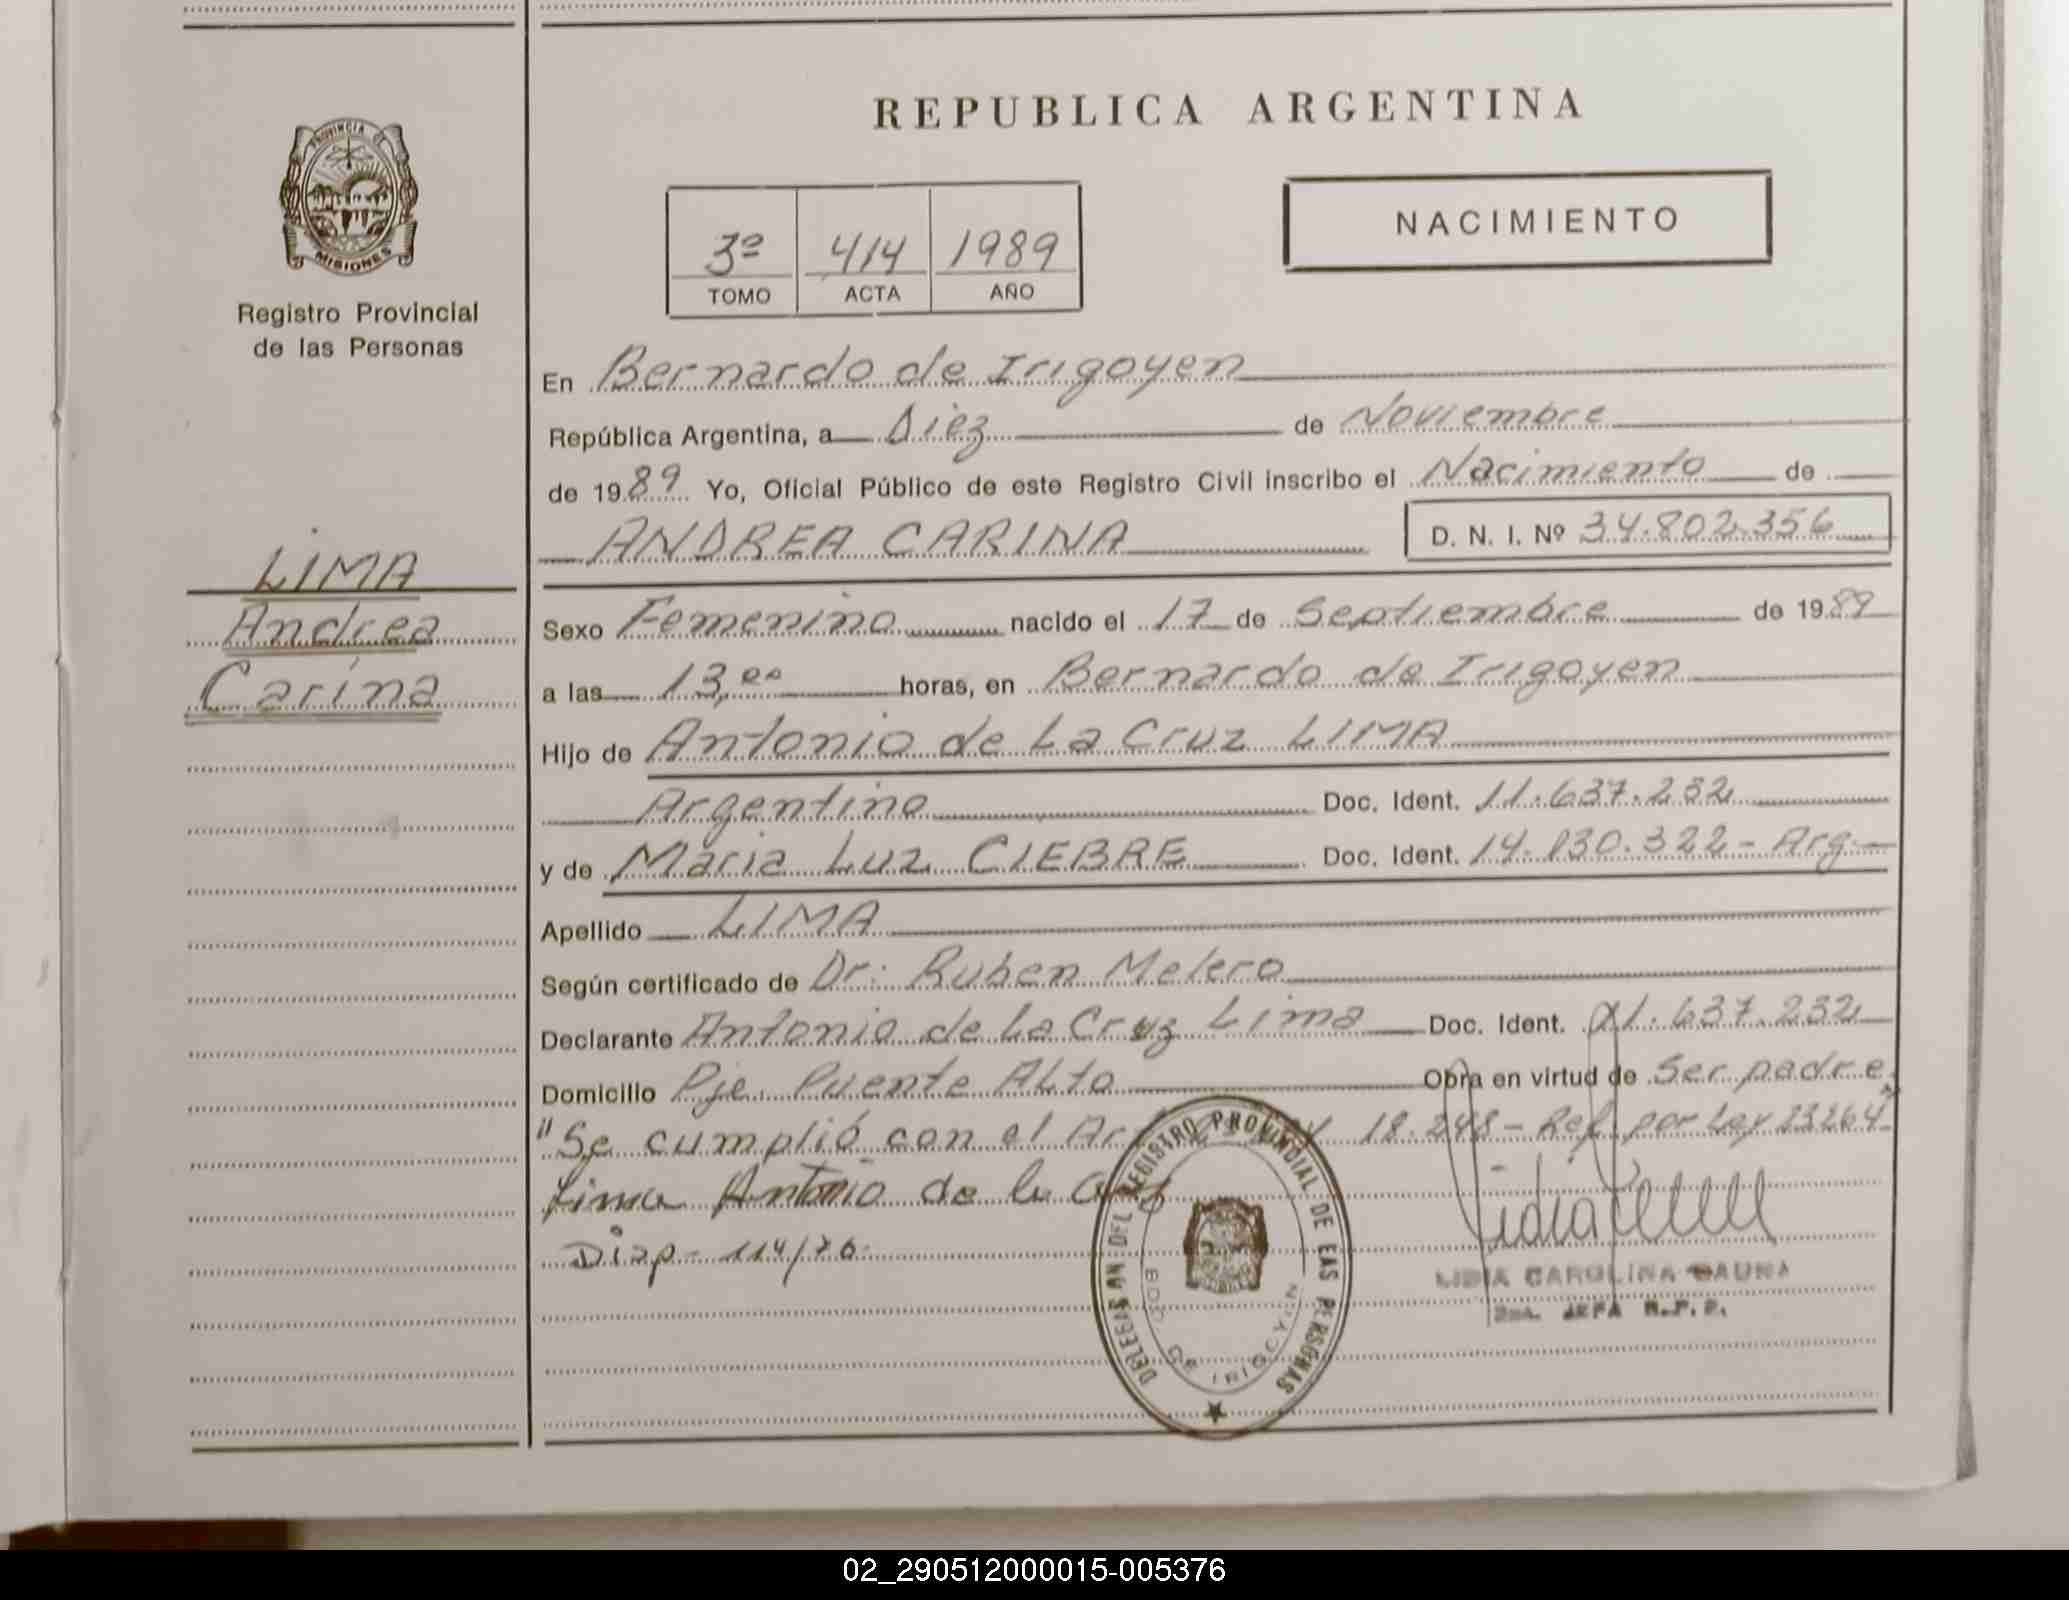 REPUBLICA ARGENTINA
PROVINCIA DE
MISIONES
Registro Provincial
de las Personas
3º 414 1989
TOMO ACTA AÑO
NACIMIENTO
En Bernardo de Irigoyen
República Argentina, a Diez de Noviembre
de 1989 Yo, Oficial Público de este Registro Civil inscribo el Nacimiento de
ANDREA CARINA D. N. I. Nº 34.802.356
LIMA
Andrea
Carina
Sexo Femenino nacido el 17 de Septiembre de 1989
a las 13,00 horas, en Bernardo de Irigoyen
Hijo de Antonio de La Cruz LIMA
Argentino Doc. Ident. 11.637.232
y de Maria Luz CIEBRE Doc. Ident. 14.130.322 - Arg -
Apellido LIMA
Según certificado de Dr: Ruben Melero
Declarante Antonio de La Cruz Lima Doc. Ident. 11.637.232
Domicilio Pje. Puente Alto Obra en virtud de Ser padre
"Se cumplió con el 18.248 - Ref. por Ley 23264"
Lima Antonio de la Cruz
Disp - 114/76
DELEGACION DEL REGISTRO PROVINCIAL DE LAS PERSONAS
BDO DE IRIGOYEN
LIDIA CAROLINA GAUNA
JEFA R.P.P.
02_290512000015-005376